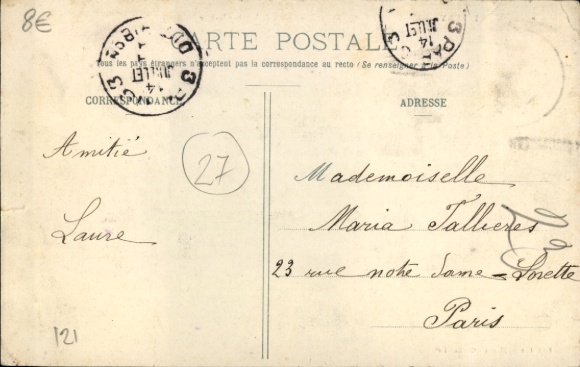 8€
CARTE POSTALE
Tous les pays étrangers n'acceptent pas la correspondance au recto (Se renseigner à la Poste)
CORRESPONDANCE
ADRESSE
14
JUILLET
14
JUILLET
27
Amitié
Laure
Mademoiselle
Maria Tallieres
23 rue notre Dame-Lorette
Paris
121